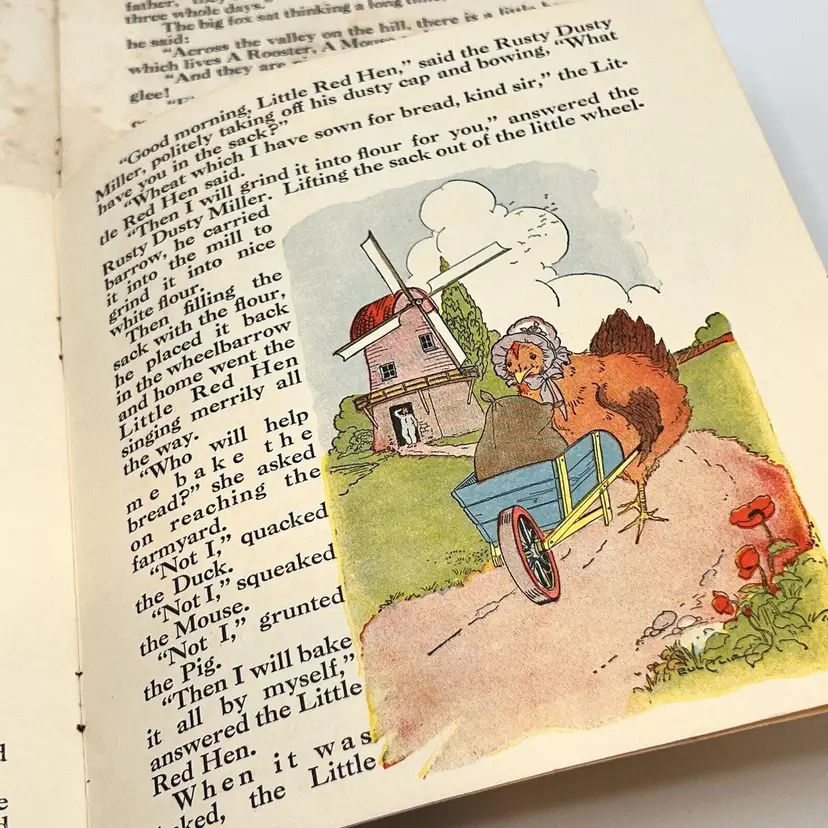 father,
three whole days."
The big fox sat thinking a long time
he said:
"Across the valley on the hill, there is a little
which lives A Rooster, A Mouse
"And they are
glee!
"Good morning, Little Red Hen," said the Rusty Dusty
Miller, politely taking off his dusty cap and bowing, "What
have you in the sack?"
"Wheat which I have sown for bread, kind sir," the Lit-
tle Red Hen said.
"Then I will grind it into flour for you," answered the
Rusty Dusty Miller. Lifting the sack out of the little wheel-
barrow, he carried
it into the mill to
grind it into nice
white flour.
Then filling the
sack with the flour,
he placed it back
in the wheelbarrow
and home went the
Little Red Hen
singing merrily all
the way.
"Who will help
me bake the
bread?" she asked
on reaching the
farmyard.
"Not I," quacked
the Duck.
"Not I," squeaked
the Mouse.
"Not I," grunted
the Pig.
"Then I will bake
it all by myself,"
answered the Little
Red Hen.
When it was
the Little